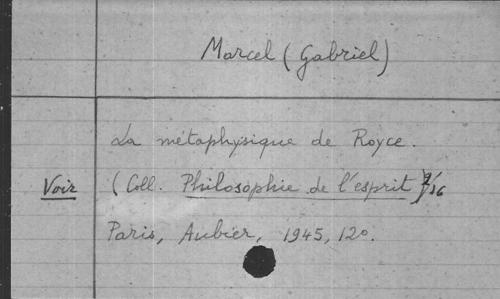 Marcel (Gabriel)
La métaphysique de Royce.
Voir (Coll. Philosophie de l'esprit)
Paris, Aubier, 1945, 12o.